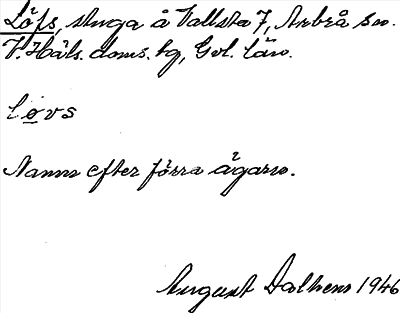 Löfs, stuga å Vallsta 7, Arbrå sn.
V. Häls. doms. hg, Gvl. län.
lovs
Namn efter förra ägarn.
August Dalhem 1946